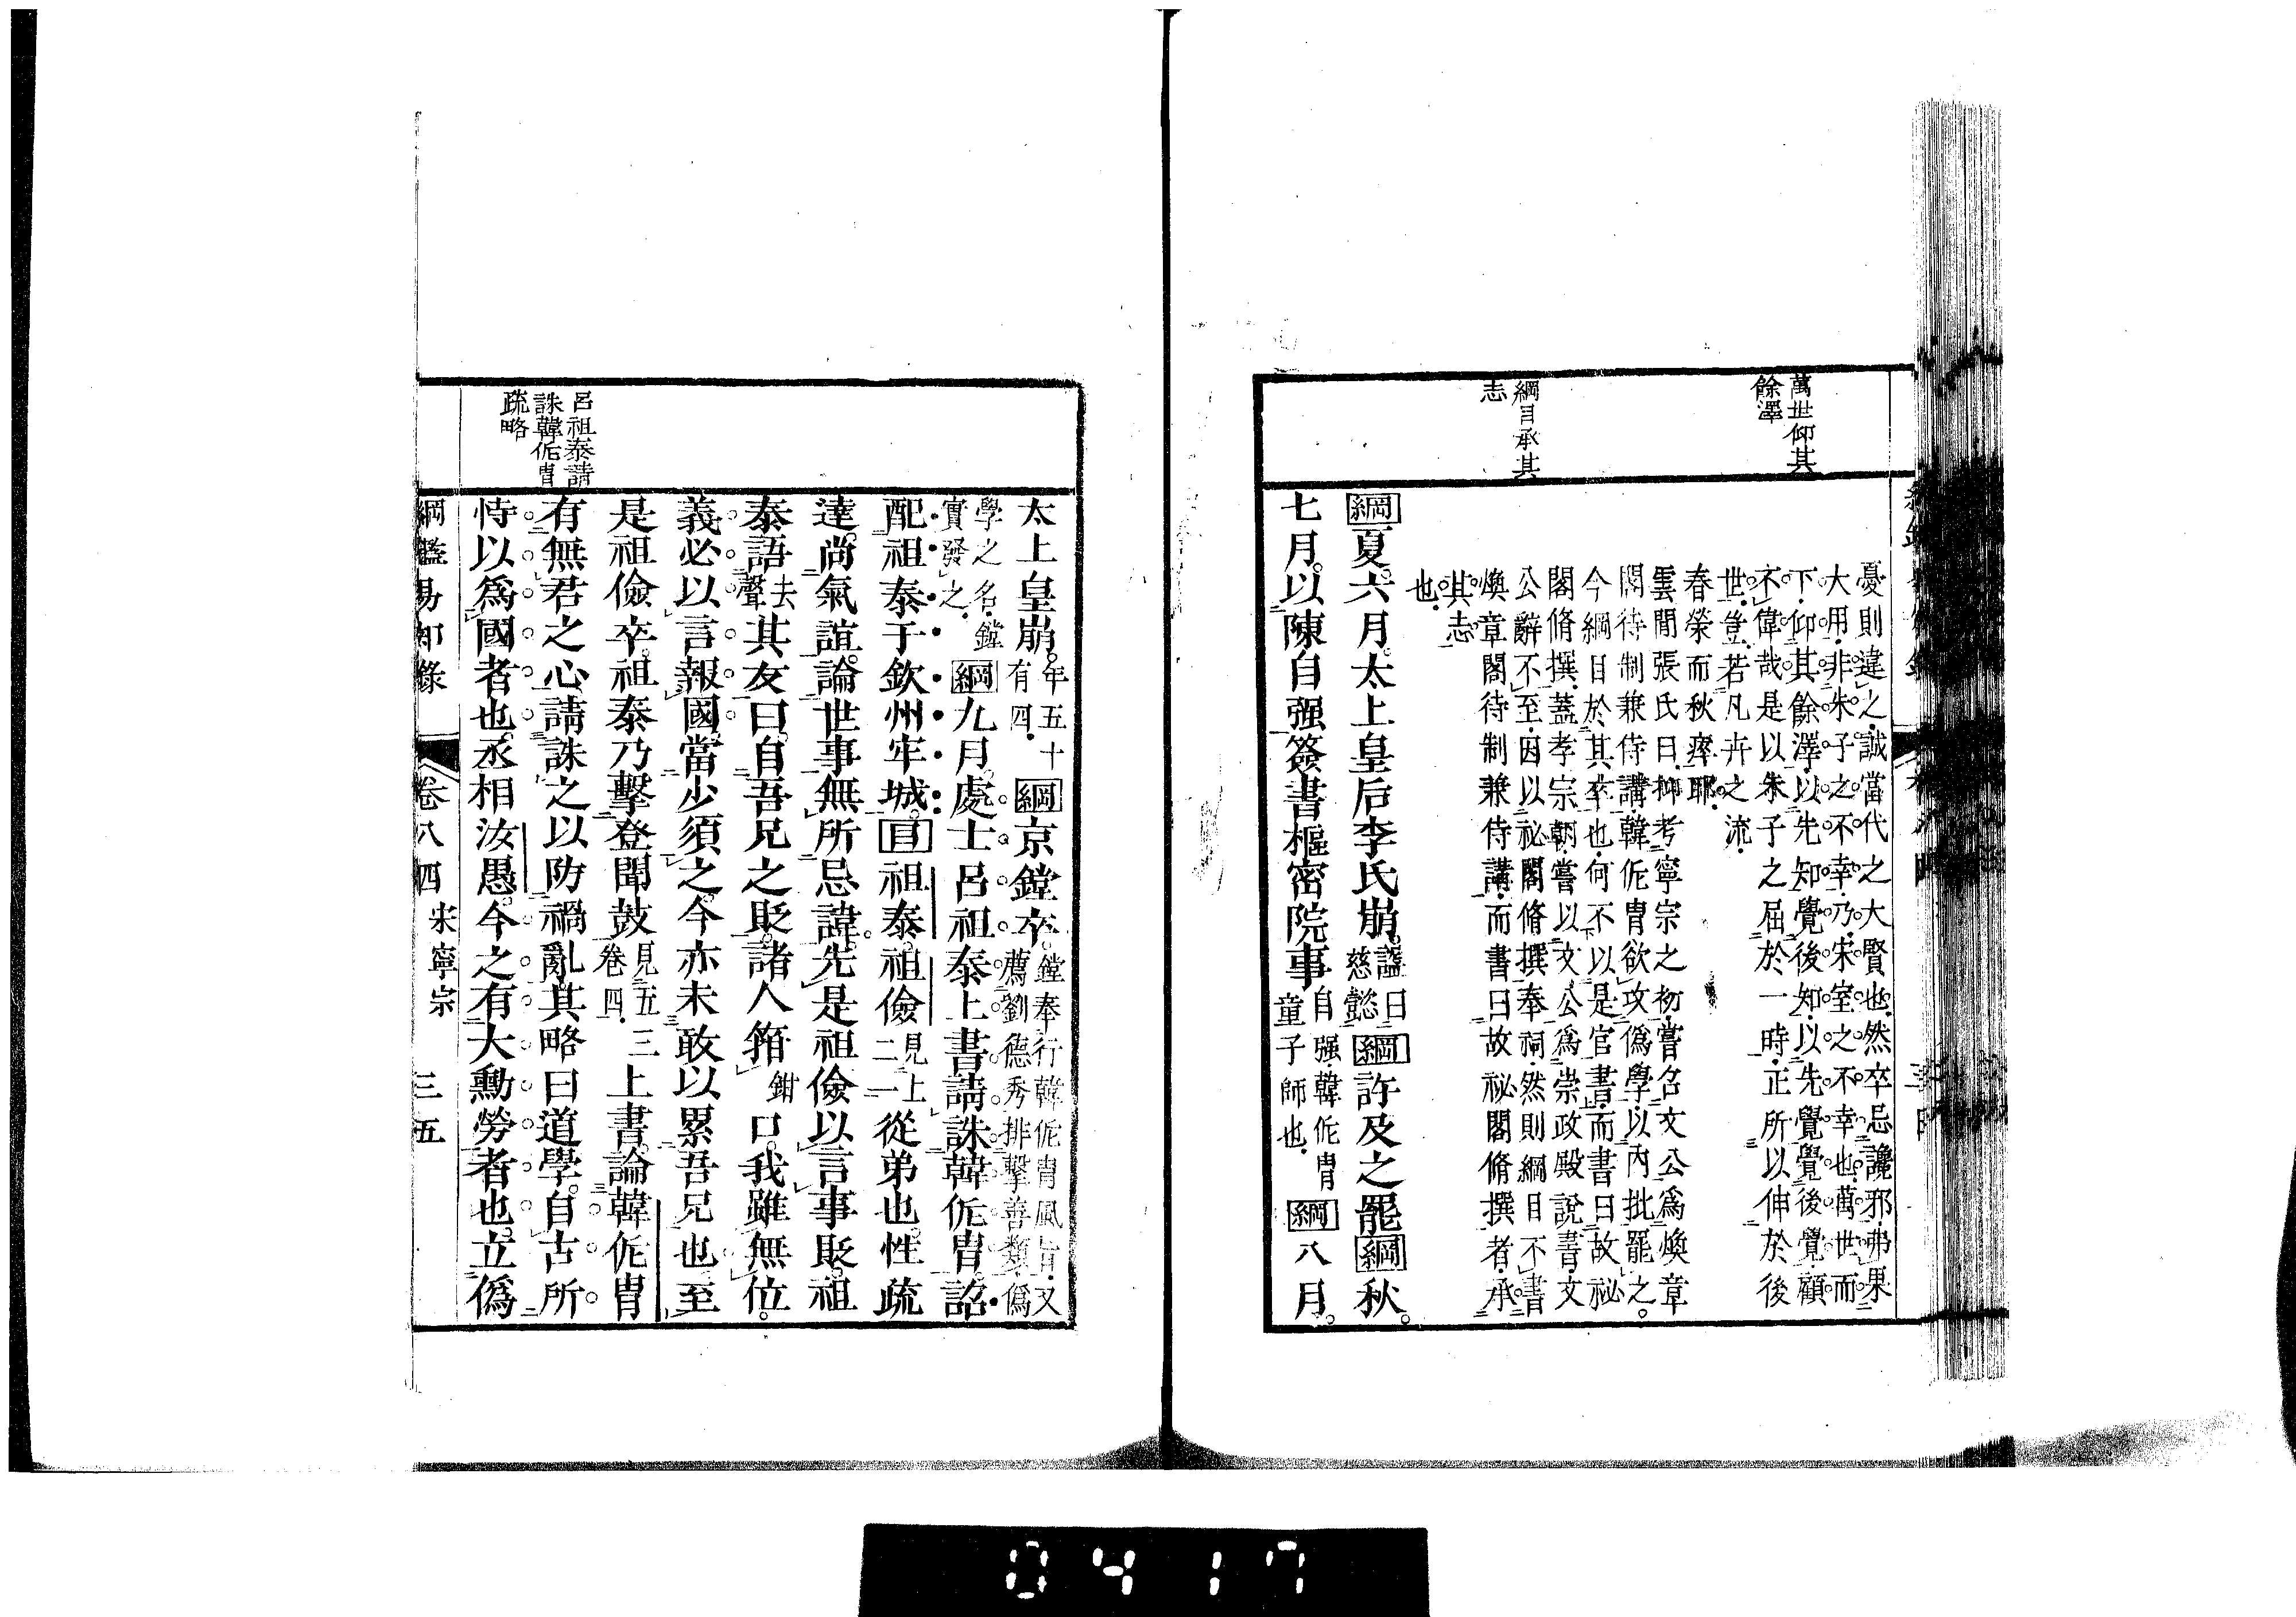 萬世仰其
餘澤
綱目承其
志
憂則違之誠當代之大賢也然卒忌讒邪弗果
大用非朱子之不幸乃宋室之不幸也萬世而
下仰其餘澤以先知覺後知以先覺覺後覺顧
不偉哉是以朱子之屈於一時正所以伸於後
世豈若凡卉之流
春榮而秋瘁耶
雲間張氏曰抑考寧宗之初嘗召文公爲煥章
閣待制兼侍講韓侂冑欲攻僞學以內批罷之
今綱目於其卒也何不以是官書而書曰故祕
閣脩撰蓋孝宗朝嘗以文公爲崇政殿說書文
公辭不至因以祕閣脩撰奉祠然則綱目不書
煥章閣待制兼侍講而書曰故祕閣脩撰者承
其志
也
綱夏六月太上皇后李氏崩諡曰慈懿綱許及之罷綱秋
七月以陳自强簽書樞密院事自强韓侂冑童子師也綱八月
呂祖泰請
誅韓侂冑
疏略
太上皇崩年五十有四綱京鏜卒鏜奉行韓侂冑風旨又薦劉德秀排擊善類僞
學之名鏜實發之綱九月處士呂祖泰上書請誅韓侂冑詔
配祖泰于欽州牢城目祖泰祖儉見上二一從弟也性疏
達尚氣誼論世事無所忌諱先是祖儉以言事貶祖
泰語去聲其友曰自吾兄之貶諸人箝鉗口我雖無位
義必以言報國當少須之今亦未敢以累吾兄也至
是祖儉卒祖泰乃擊登聞鼓見五卷四三上書論韓侂冑
有無君之心請誅之以防禍亂其略曰道學自古所
恃以爲國者也丞相汝愚今之有大勳勞者也立僞
綱鑑易知錄 卷八四 宋寧宗 三五
0417